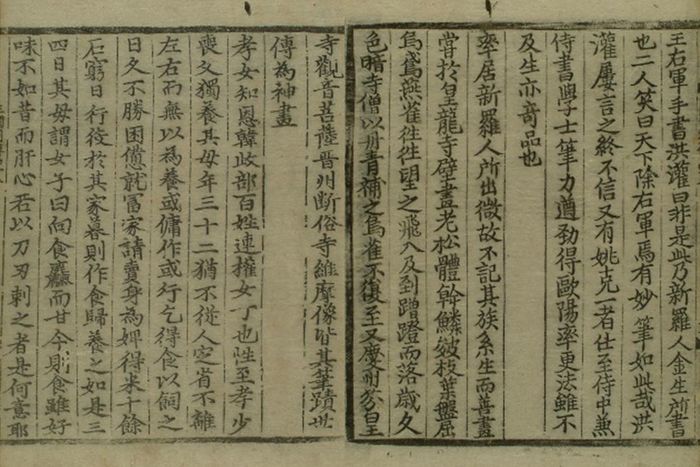 王右軍手書洪灌曰非是此乃新羅人金生所書
也二人笑曰天下除右軍焉有妙筆如此哉洪
灌屢言之終不信又有姚克一者仕至侍中兼
侍書學士筆力遒勁得歐陽率更法雖不
及生亦奇品也
率居新羅人所出微故不記其族系生而善畫
嘗於皇龍寺壁畫老松體幹鱗皴枝葉盤屈
烏鳶燕雀往往望之飛入及到蹭蹬而落歲久
色暗寺僧以丹青補之烏雀不復至又慶州芬皇
寺觀音菩薩晋州斷俗寺維摩像皆其筆蹟世
傳為神畫
孝女知恩韓歧部百姓連權女子也性至孝少
喪父獨養其母年三十二猶不從人定省不離
左右而無以為養或傭作或行乞得食以飼之
日久不勝困憊就富家請賣身為婢得米十餘
石窮日行役於其家暮則作食歸養之如是三
四日其母謂女子曰向食麤而甘今則食雖好
味不如昔而肝心若以刀刃刺之者是何意耶